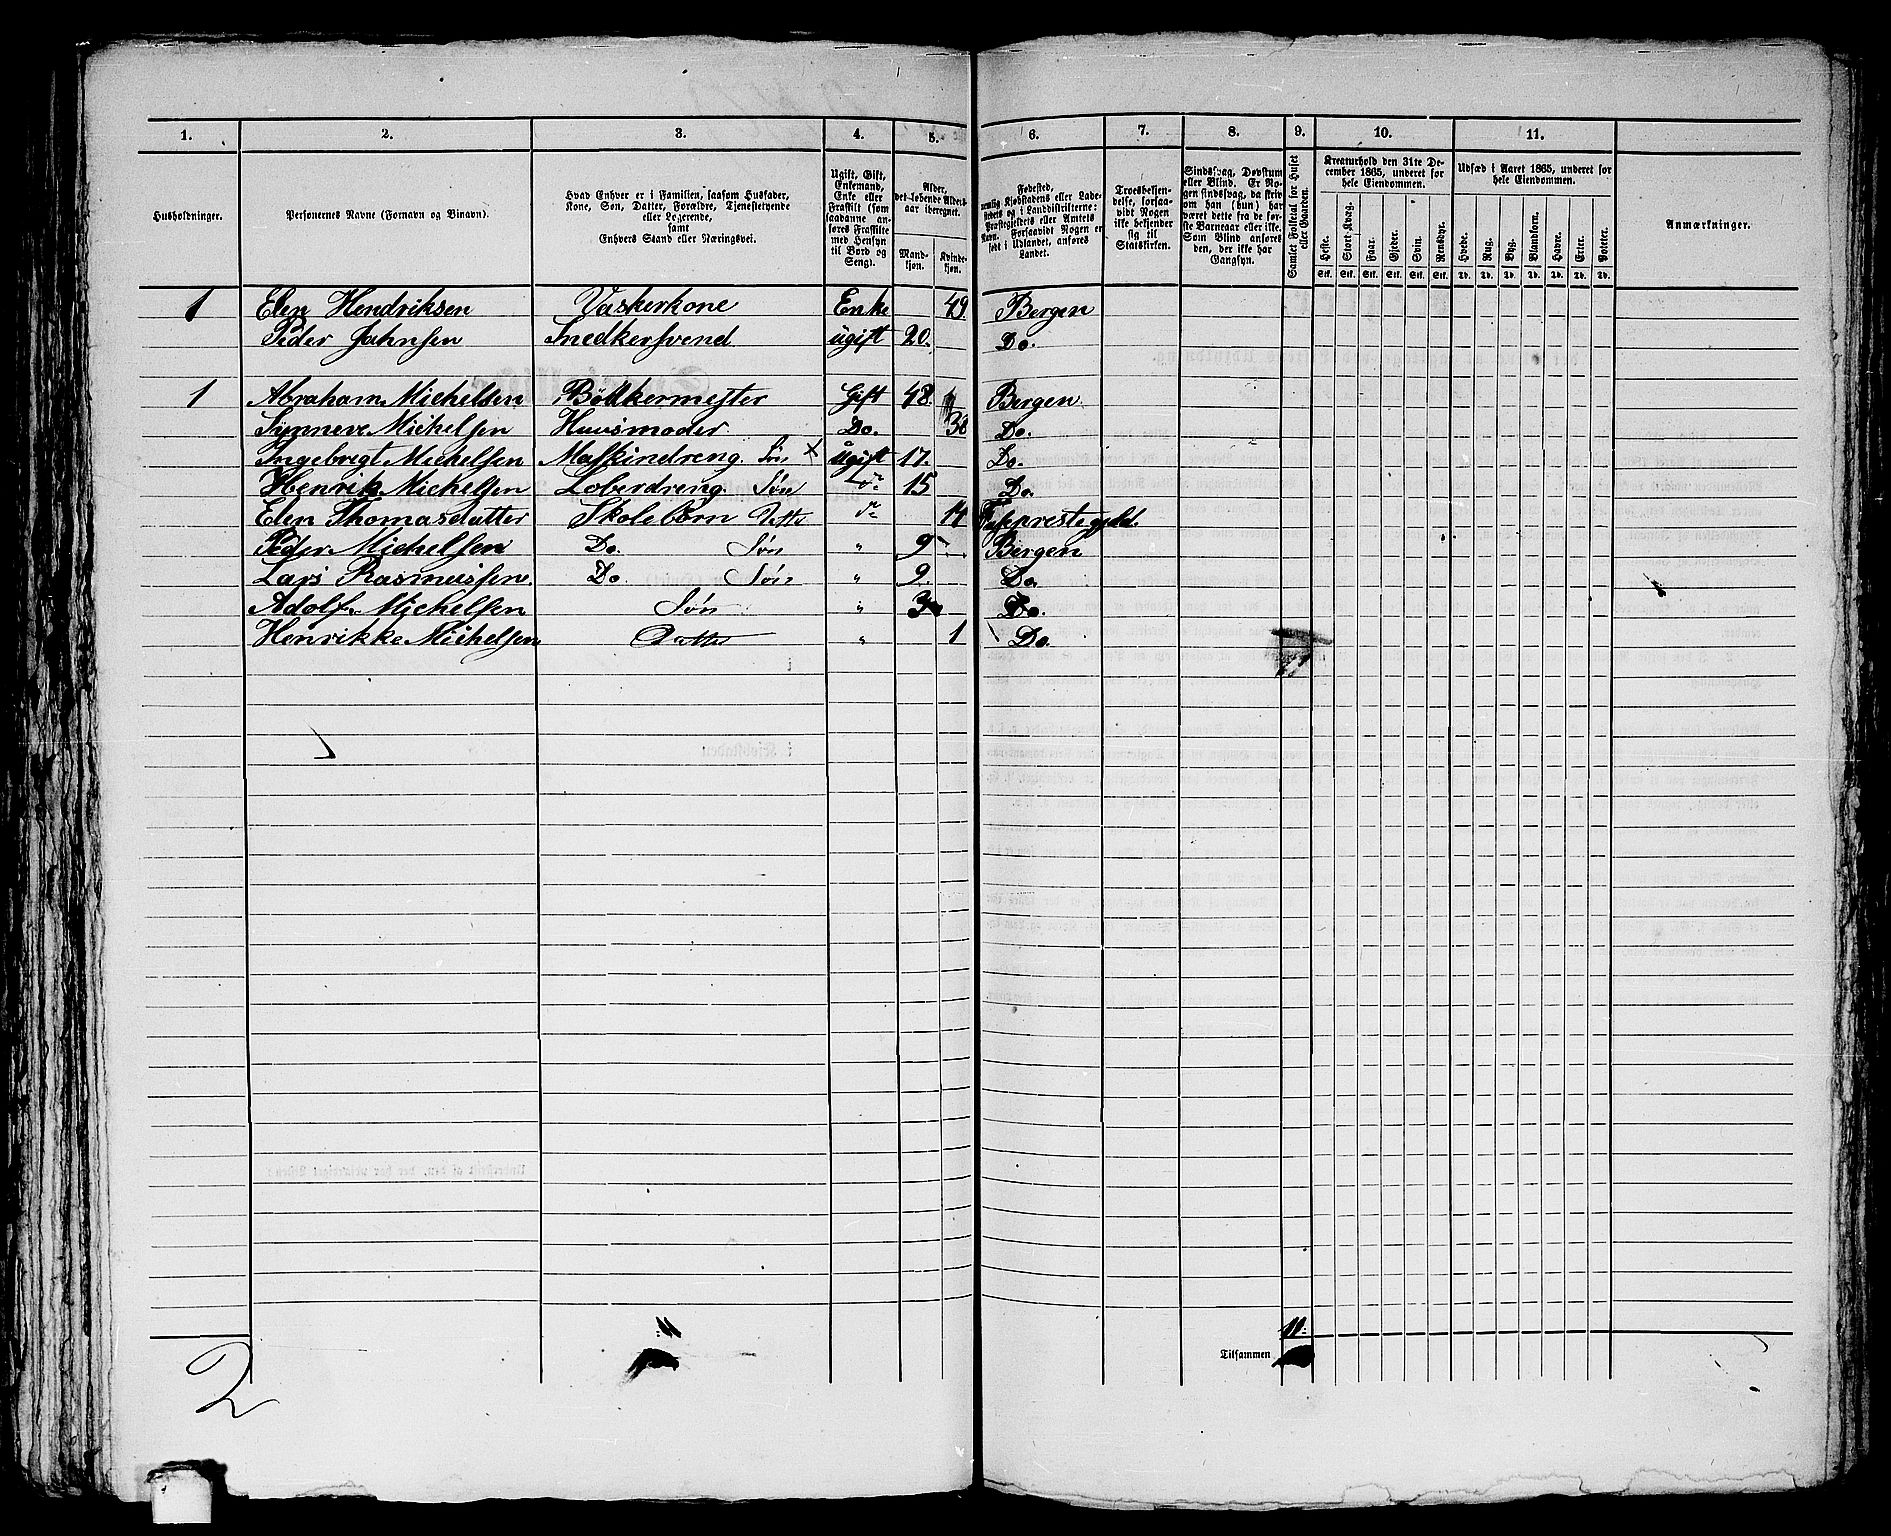 1. 2. 3. 4. 5. 6. 7. 8. 9. 10. 11.
Husholdninger.
Personernes Navne (Fornavn og Binavn).
Hvad Enhver er i Familien, saasom Husfader,
Kone, Søn, Datter, Forældre, Tjenestetyende
eller Logerende,
samt
Enhvers Stand eller Næringsvei.
Ugift, Gift,
Enkemand,
Enke eller
Fraskilt (som
saadanne an-
føres Fraskilte
med Hensyn
til Bord og
Seng).
Alder,
det løbende Alders-
aar iberegnet.
Mand-
kjøn.
Kvinde-
kjøn.
Fødested,
nemlig Kjøbstadens eller Lade-
stedets og i Landdistrikterne:
Præstegjeldets eller Amtets
Navn. Forsaavidt Nogen er
født i Udlandet, anføres
Landet.
Troesbekjen-
delse, forsaa-
vidt Nogen
ikke bekjender
sig til
Statskirken.
Sindssvag, Døvstum
eller Blind. Er No-
gen sindssvag, da skriv
om han (hun) har
været dette fra de før-
ste Barneaar eller ikke.
Som Blind anføres
den, der ikke har
Gangsyn.
Samlet Folketal for Huset
eller Gaarden.
Kreaturhold den 31te De-
cember 1865, underet for
hele Eiendommen.
Heste. Stort Kvæg. Faar. Gjeder. Svin. Rensdyr.
Stk. Stk. Stk. Stk. Stk. Stk.
Udsæd i Aaret 1865, underet for
hele Eiendommen.
Hvede. Rug. Byg. Blandkorn. Havre. Erter. Poteter.
Td. Td. Td. Td. Td. Td. Td.
Anmærkninger.
1 Elen Hendriksen Vaskerkone Enke 49. Bergen
Peder Jahnsen Snedkersvend ugift 20. Do.
1 Abraham Michelsen Bödkermester Gift 48. Bergen
Synneve Michelsen Huusmoder Do. 38 Do.
Ingebrigt Michelsen Maskindreng. Søn × ugift 17. Do.
Henrik Michelsen Loberdreng. Søn do 15 Do.
Elen Thomasdatter Skolebörn Datter do 14
Peder Michelsen Do. Søn " 9 Bergen
Lars Rasmussen. Do Søn " 9. Do.
Adolf Michelsen Søn " 3 Do.
Henrikke Michelsen Datter " 1 Do.
11
11
Tilsammen
2